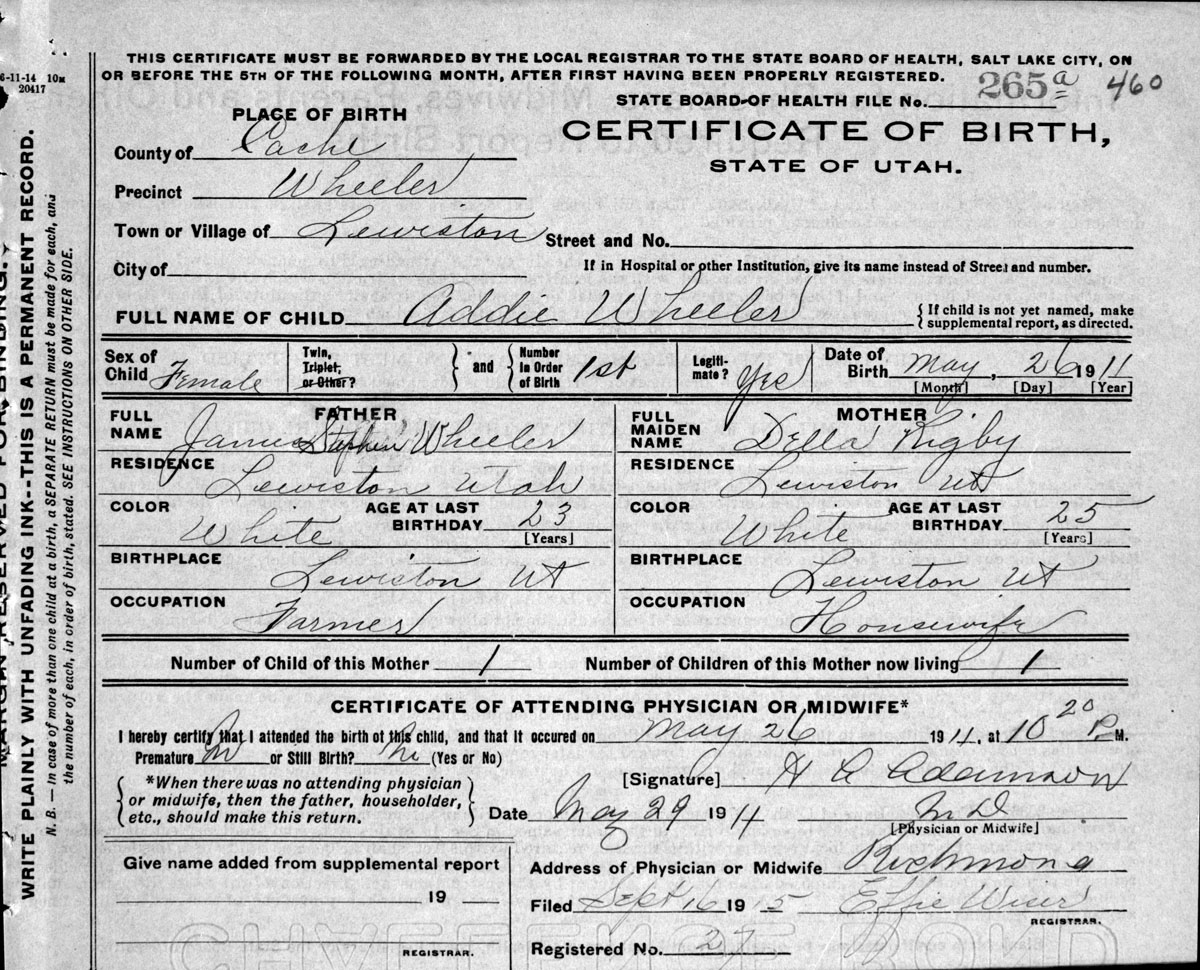 6-11-14 10M
20417
THIS CERTIFICATE MUST BE FORWARDED BY THE LOCAL REGISTRAR TO THE STATE BOARD OF HEALTH, SALT LAKE CITY, ON
OR BEFORE THE 5TH OF THE FOLLOWING MONTH, AFTER FIRST HAVING BEEN PROPERLY REGISTERED.
STATE BOARD OF HEALTH FILE No. 265 a 460
PLACE OF BIRTH
CERTIFICATE OF BIRTH,
STATE OF UTAH.
County of Cache
Precinct Wheeler
Town or Village of Lewiston Street and No.
City of If in Hospital or other Institution, give its name instead of Street and number.
FULL NAME OF CHILD Addie Wheeler { If child is not yet named, make supplemental report, as directed.
Sex of Child Female Twin, Triplet, or Other? } and { Number in Order of Birth 1st Legiti-mate? Yes Date of Birth May, 26 1911
[Month] [Day] [Year]
FATHER
FULL NAME James Stephen Wheeler
RESIDENCE Lewiston Utah
COLOR White AGE AT LAST BIRTHDAY 23 [Years]
BIRTHPLACE Lewiston UT
OCCUPATION Farmer
MOTHER
FULL MAIDEN NAME Della Rigby
RESIDENCE Lewiston UT
COLOR White AGE AT LAST BIRTHDAY 25 [Years]
BIRTHPLACE Lewiston UT
OCCUPATION Housewife
Number of Child of this Mother 1 Number of Children of this Mother now living 1
CERTIFICATE OF ATTENDING PHYSICIAN OR MIDWIFE*
I hereby certify that I attended the birth of this child, and that it occured on May 26 1911, at 10 20 P M.
Premature No or Still Birth? No (Yes or No)
{ *When there was no attending physician
or midwife, then the father, householder,
etc., should make this return. }
[Signature] H A Adamson
Date May 29 1911 M D
[Physician or Midwife]
Give name added from supplemental report
19
REGISTRAR.
Address of Physician or Midwife Richmond
Filed Sept 16 1915 Effie Wiser
REGISTRAR.
Registered No. 27
MARGIN RESERVED FOR BINDING.
WRITE PLAINLY WITH UNFADING INK--THIS IS A PERMANENT RECORD.
N. B. — In case of more than one child at a birth, a SEPARATE RETURN must be made for each, and
the number of each, in order of birth, stated. SEE INSTRUCTIONS ON OTHER SIDE.